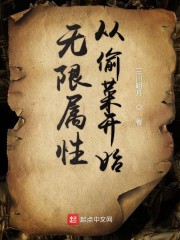 从偷菜开始
无限属性
著
起点中文网